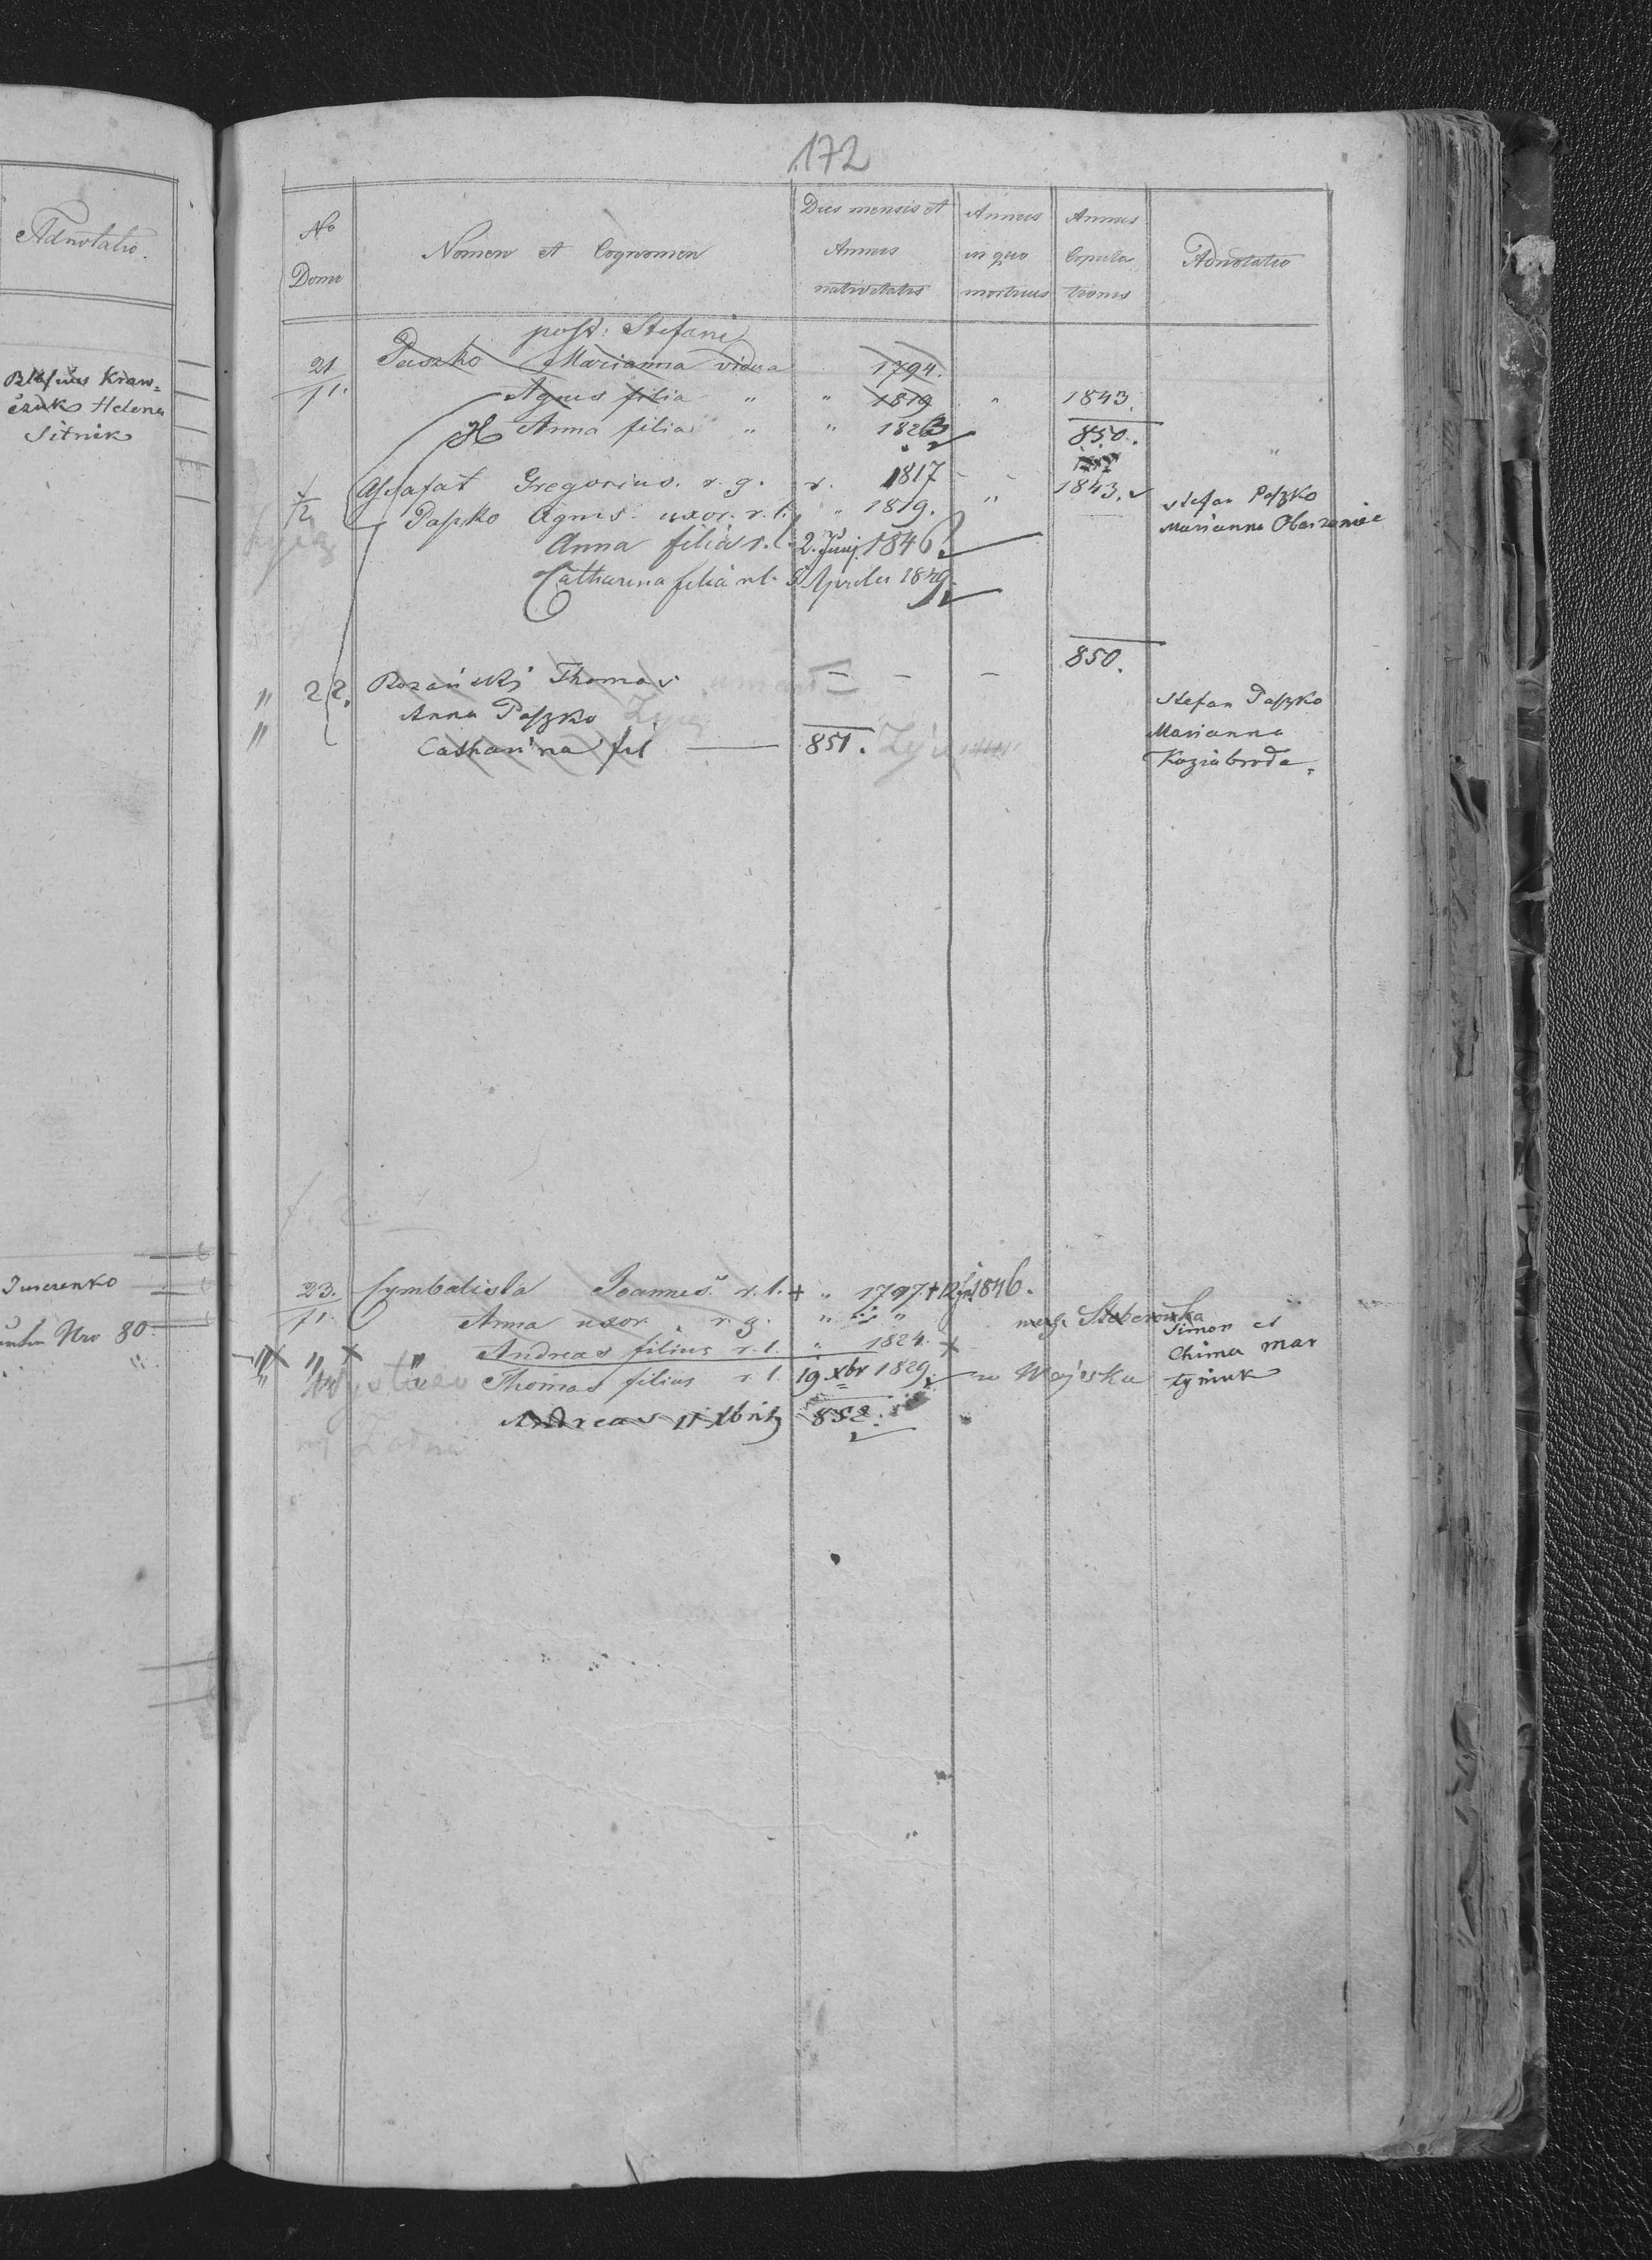 Adnotatio.
Blasius Kraw=
czuk Helena
Sitnik
Jurerenko
Nro 80
172
No Domi
Nomen et Cognomen
Dies mensis et Annus nativitatis
Annus in quo mortuus
Annus Copula tionis
Adnotatio
post: Stefani
21 Paszko Marianna vidua 1794.
f1. Agnes filia " " 1819 " 1843.
Anna filia " " 1826 850. "
Gregorius. r. g. r. 1817 - -
f2 Paszko Agnes uxor. r. l. " 1819. " 1843.
Stefan Paszko
Marianna
Anna filia r. l. 2. Junij 1846
Catharina filia r. l. Aprilis 1849.
850.
" 22. Rozański Thomas - - -
" Anna Paszko Żyje
Catharina fil — 851. Żyje
Stefan Paszko
Marianna
Koziabroda.
f. 2.
23. Cymbalista Joannes r. l. + " 1797 + 1846.
f1. Anna uxor " r. g. " " "
Andreas filius r. l. " 1824. +
Thomas filius r. l. 19 xbr 1829. w Wojsku
Simon et
Chima mar
tyniuk
Andreas 11 Xbris 852.